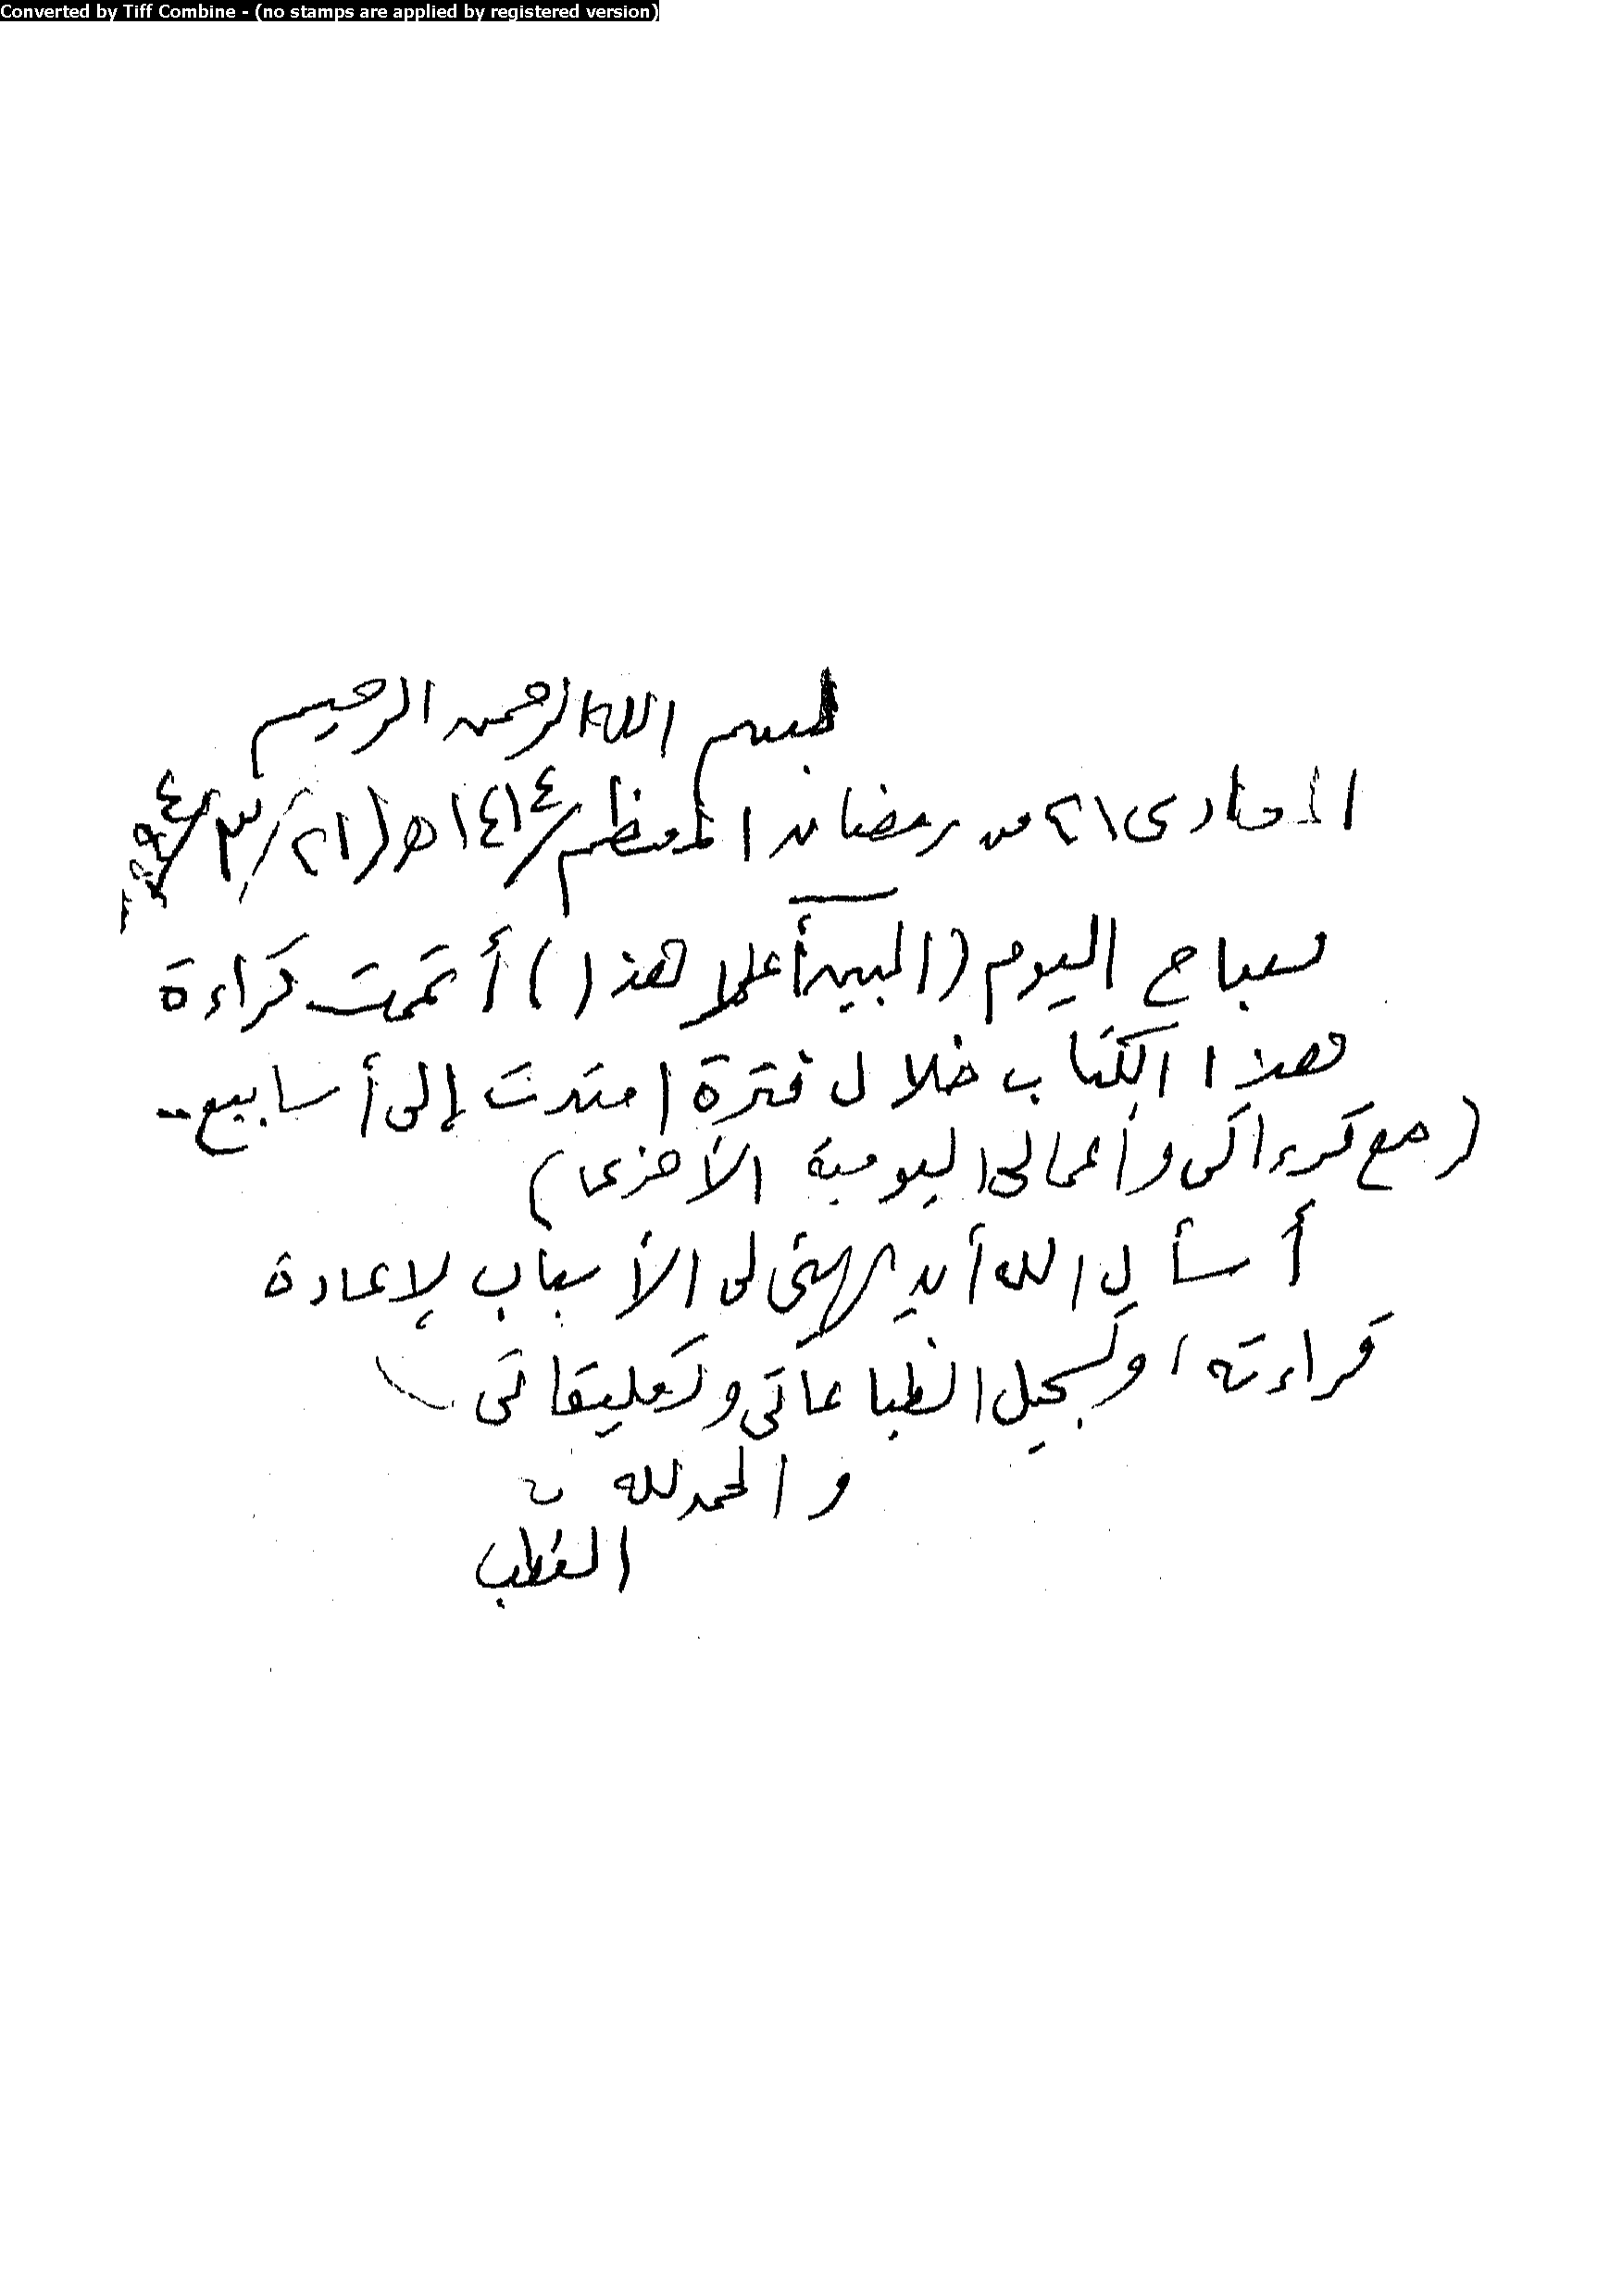 Converted by Tiff Combine - (no stamps are applied by registered version)
بسم الله الرحمن الرحيم
الحادى ٢١ من رمضان المعظم/١٤١٤ه (٢١/٣/١٩٩٤
صباح اليوم (المبين أعلا هذا) أتممت قراءة
هذا الكتاب خلال فترة امتدت إلى أسابيع --
(مع قراءاتى وأعمالى اليومية الأخرى)
أسأل الله أن يهيئ لى الأسباب لإعادة
قراءته، وتسجيل انطباعاتى وتعليقاتى
والحمد لله
القطب